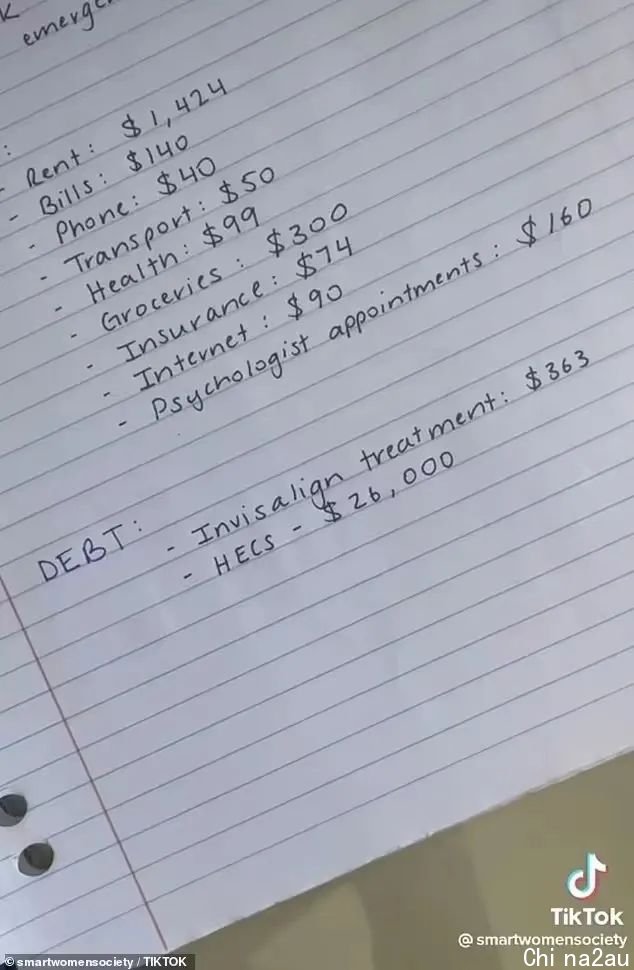 K
emerge
:
- Rent: $1,424
- Bills: $140
- Phone: $40
- Transport: $50
- Health: $99
- Groceries: $300
- Insurance: $74
- Internet: $90
- Psychologist appointments: $160
DEBT:
- Invisalign treatment: $363
- HECS - $26,000
TikTok
@smartwomensociety
© smartwomensociety / TIKTOK
Chi na2au